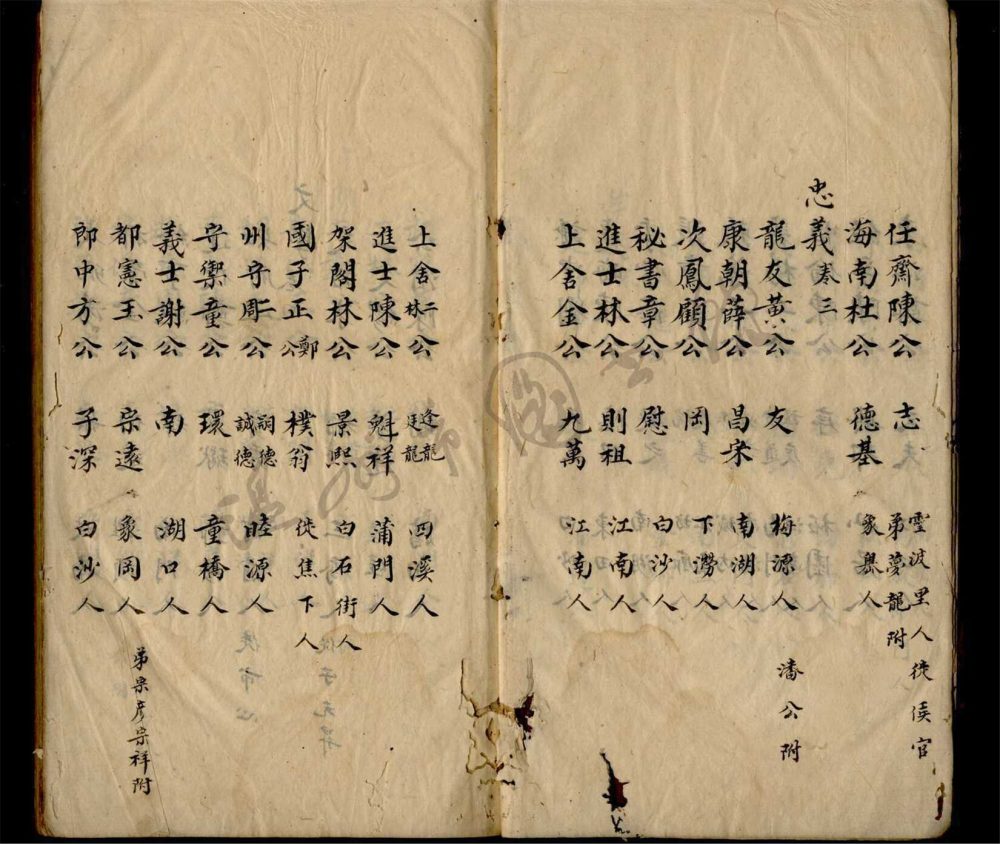 任齋陳公 志 雲波里人徙侯官 弟夢龍附
海南杜公 德基 象嶴人
忠義卷三
龍友黃公 友 梅源人 潘公附
康朝薛公 昌宋 南湖人
次鳳顧公 岡 下澇人
秘書章公 慰 白沙人
進士林公 則祖 江南人
上舍金公 九萬 江南人
上舍二林公 逢龍 廷龍 四溪人
進士陳公 魁祥 蒲門人
架閣林公 景熙 白石街人
國子正鄭公 樸翁 徙焦下人
州守二周公 嗣德 誠德 睦源人
守禦童公 環 童橋人
義士謝公 南 湖口人
都憲王公 宗遠 象岡人 弟宗彥宗祥附
郎中方公 子深 白沙人